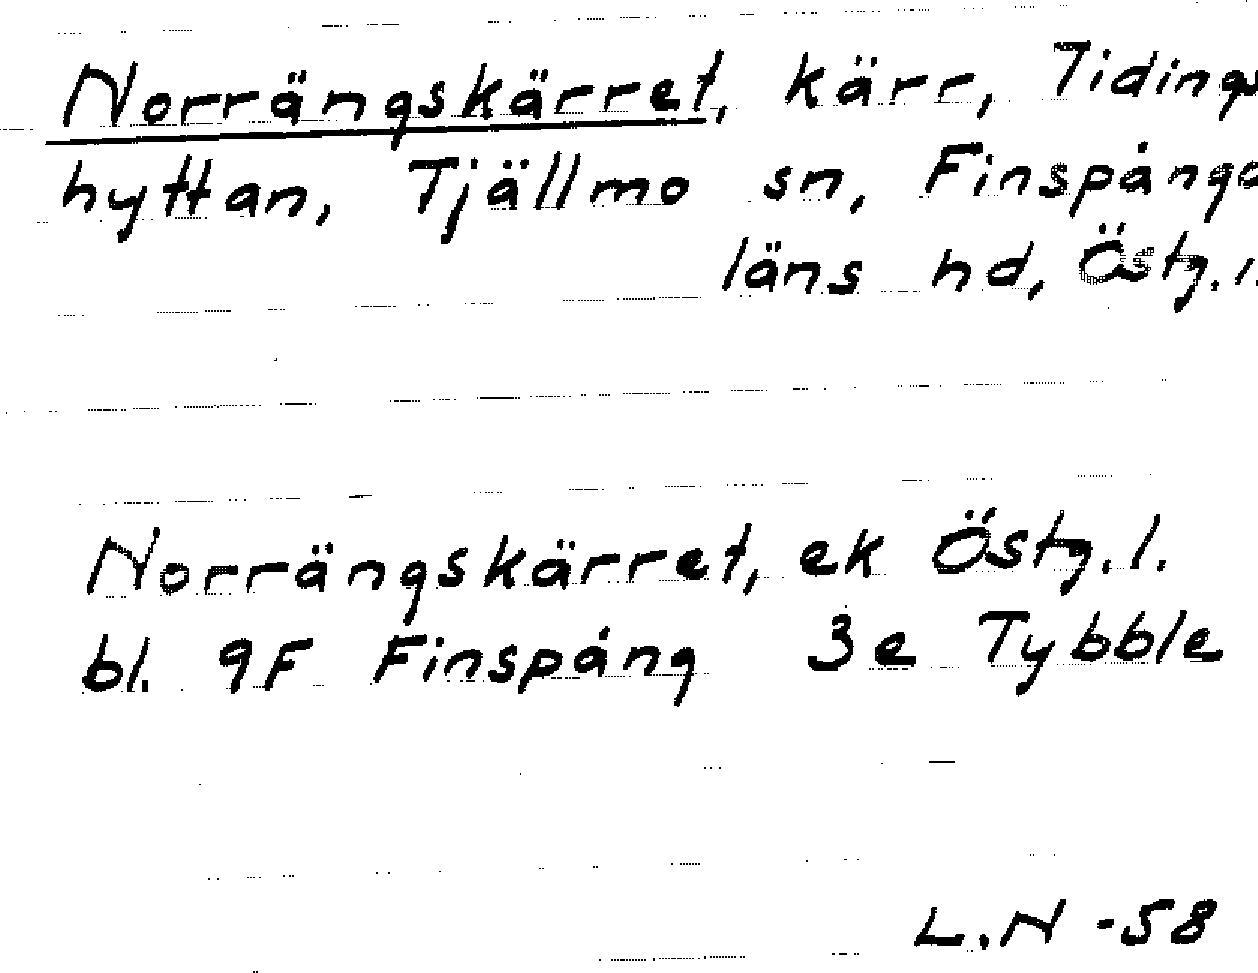 Norrängskärret, kärr, Tidings
hyttan, Tjällmo sn, Finspånga
läns hd, Östg. l.
Norrängskärret, ek Östg. l.
bl. 9F Finspång 3e Tybble
L.N -58